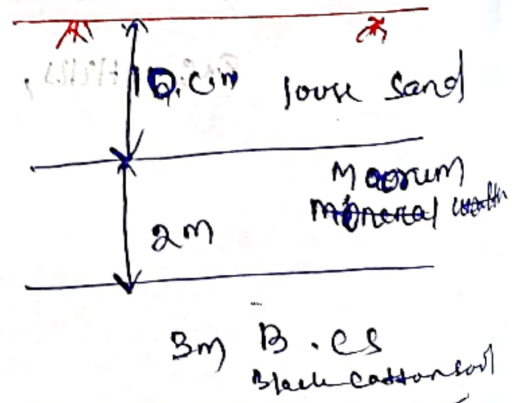 10.cm loose sand
Moorum
mineral earth
2m
3m B.CS
Black cotton soil